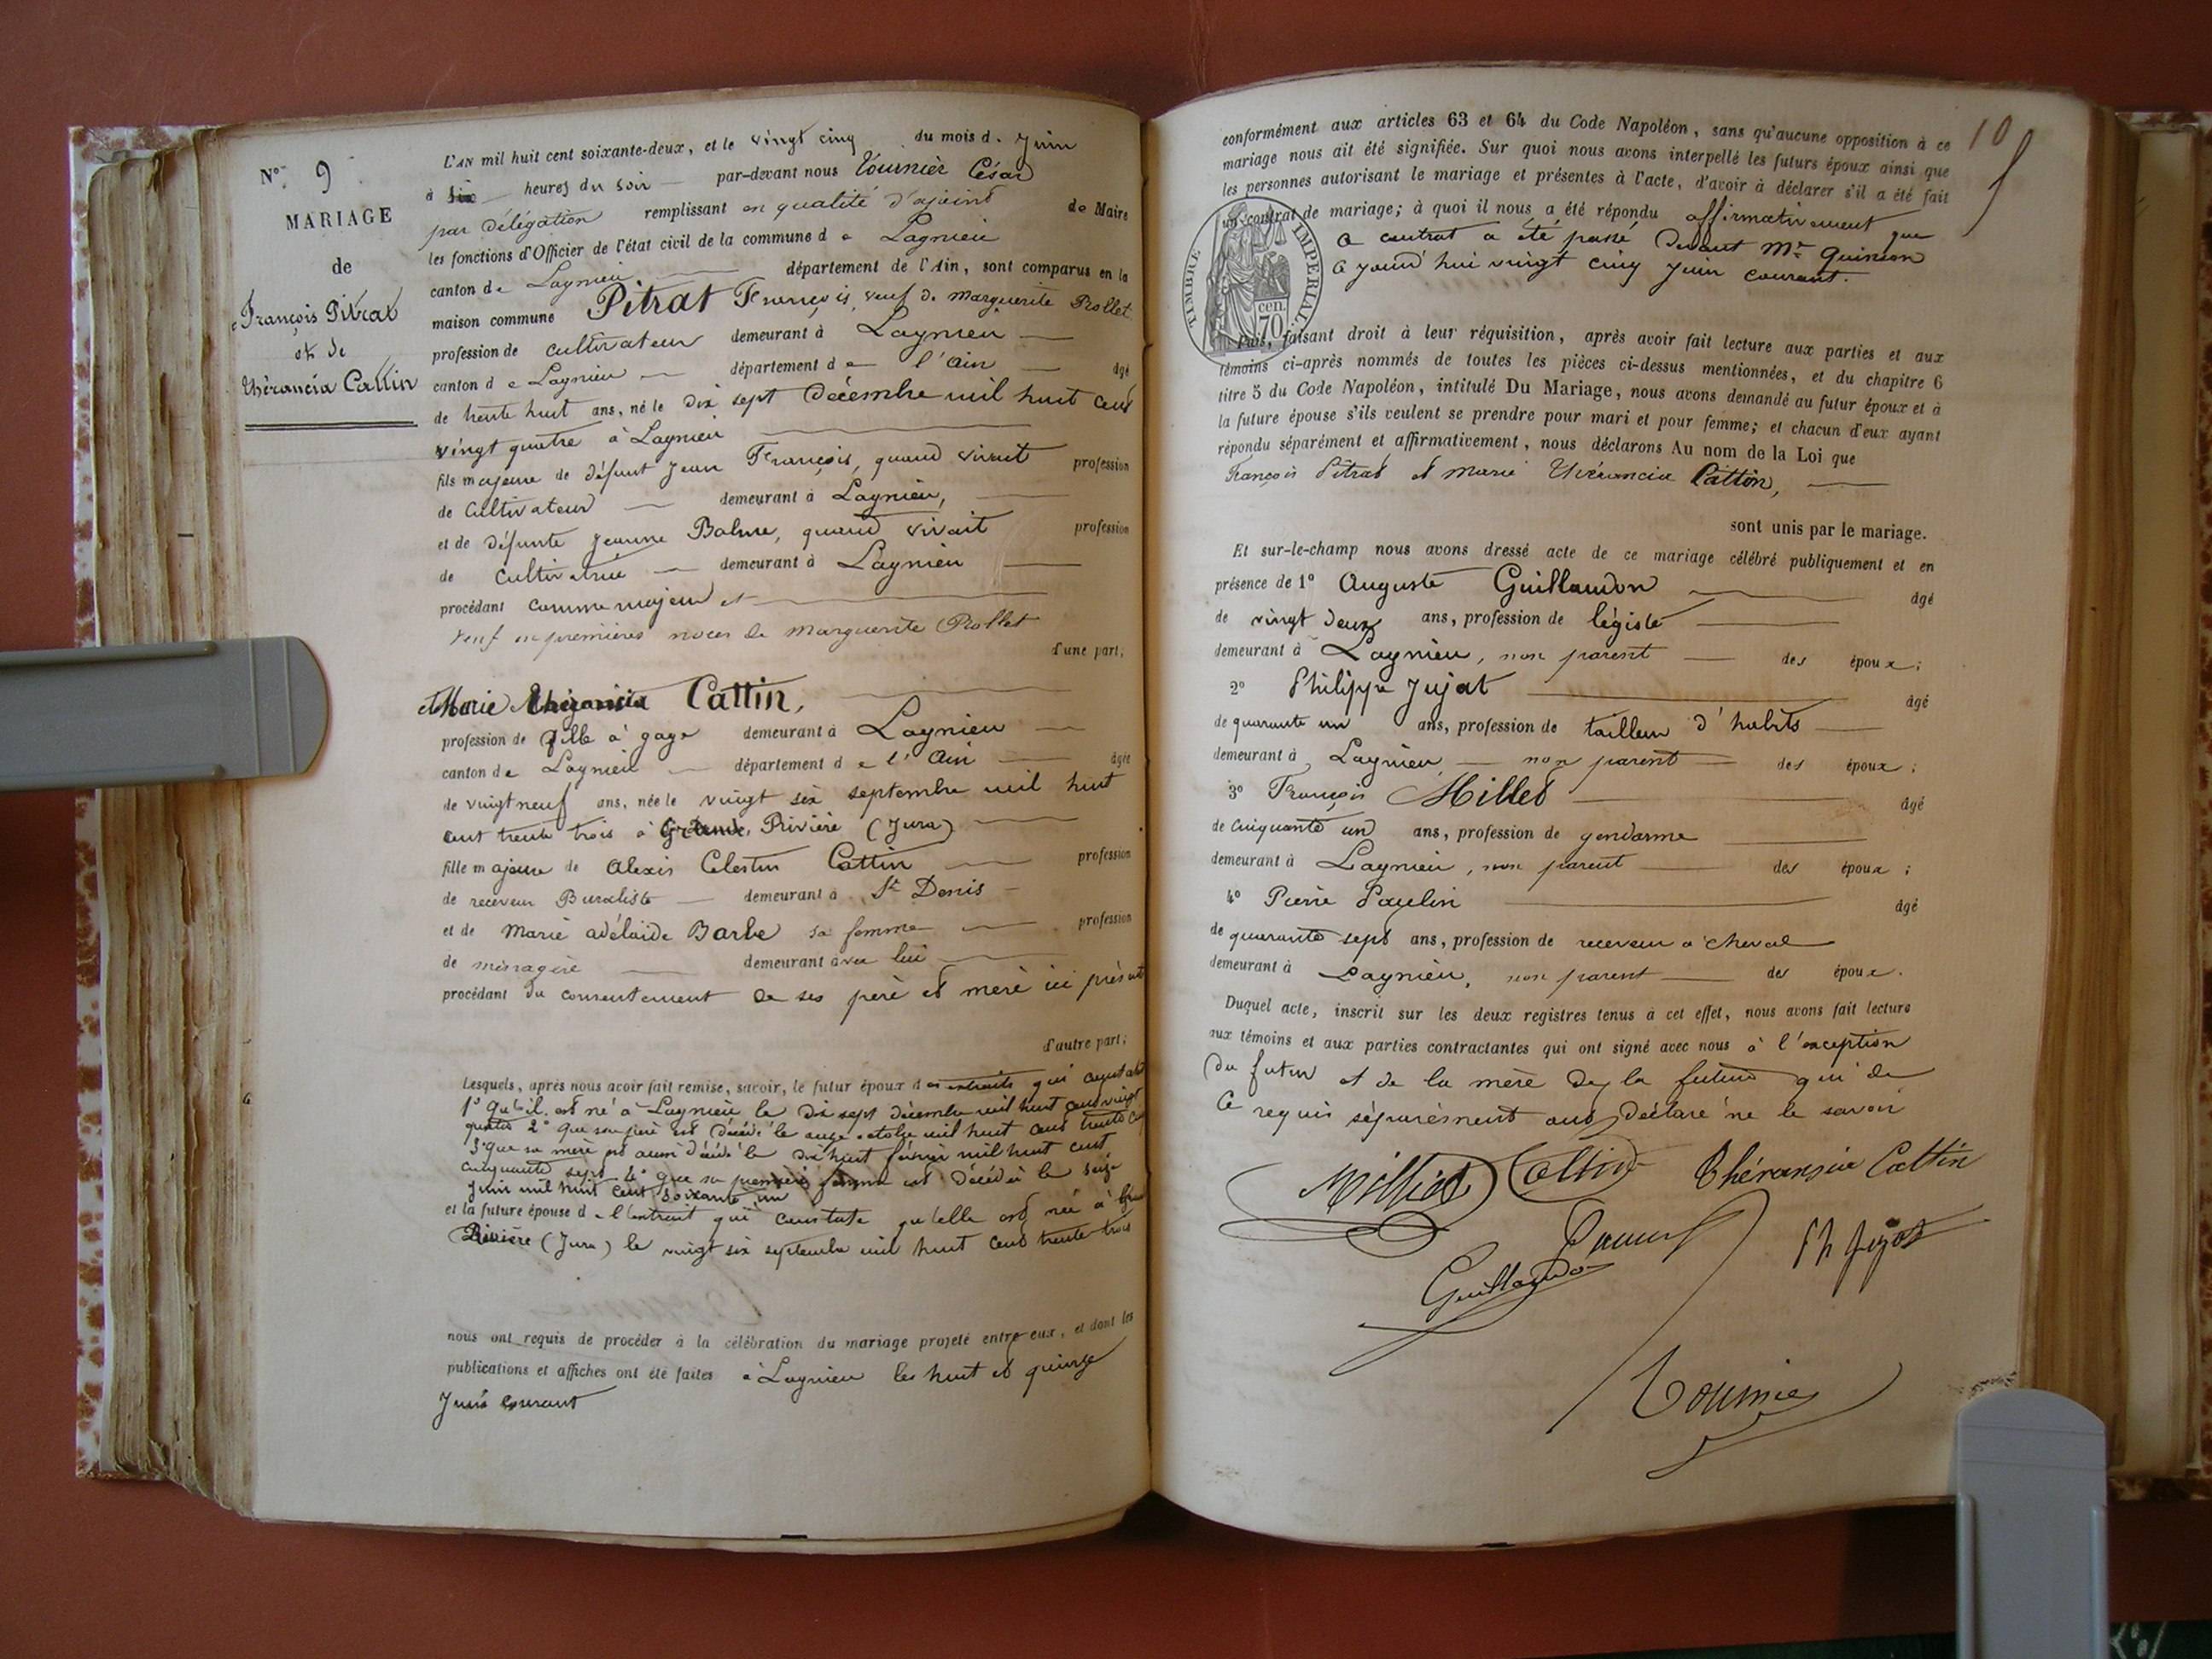 N° 9
MARIAGE
de
François Pitrat
et de
Thérancia Cattin
L'AN mil huit cent soixante-deux, et le vingt cinq du mois d. Juin
à six heures du soir par-devant nous Tournier César
par délégation remplissant en qualité d'ajoint de Maire
les fonctions d'Officier de l'état civil de la commune d e Lagnieu
canton de Lagnieu département de l'Ain, sont comparus en la
maison commune Pitrat François, veuf de Marguerite Rollet
profession de cultivateur demeurant à Lagnieu
canton d e Lagnieu département d e l'ain âgé
de trente huit ans, né le dix sept Décembre mil huit cent
vingt quatre à Lagnieu
fils majeur de défunt Jean François, quand vivait profession
de Cultivateur demeurant à Lagnieu,
et de défunte Jeanne Balme, quand vivait profession
de cultivatrice demeurant à Lagnieu
procédant comme majeur et
veuf en premières noces de Marguerite Rollet
d'une part;
et Marie Cattin,
profession de fille à gage demeurant à Lagnieu
canton de Lagnieu département d e l'Ain âgée
de vingt neuf ans, née le vingt six septembre mil huit
cent trente trois à Grande Rivière (Jura)
fille majeure de Alexis Celestin Cattin profession
de receveur Buraliste demeurant à St Denis
et de Marie adélaide Barbe sa femme profession
de ménagère demeurant avec lui
procédant du consentement de ses père et mère ici présent
d'autre part;
Lesquels, après nous avoir fait remise, savoir, le futur époux d es extraits qui constatent
1° Qu'il est né à Lagnieu le dix sept décembre mil huit cent vingt
quatre 2° que son père est décédé le onze octobre mil huit cent trente
3° que sa mère est aussi décédée le dix huit février mil huit cent
cinquante sept 4° que sa première femme est décédée le seize
Juin mil huit cent soixante un
et la future épouse d e l'extrait qui constate qu'elle est née à
Rivière (Jura) le vingt six septembre mil huit cent trente trois
nous ont requis de procéder à la célébration du mariage projeté entre eux, et dont les
publications et affiches ont été faites à Lagnieu les huit et quinze
Juin courant
10
conformément aux articles 63 et 64 du Code Napoléon, sans qu'aucune opposition à ce
mariage nous ait été signifiée. Sur quoi nous avons interpellé les futurs époux ainsi que
les personnes autorisant le mariage et présentes à l'acte, d'avoir à déclarer s'il a été fait
un contrat de mariage; à quoi il nous a été répondu affirmativement que
ce contrat a été passé devant Me Quinson
ce jourd'hui vingt cinq Juin courant.
TIMBRE IMPERIAL
70 cen.
Puis, faisant droit à leur réquisition, après avoir fait lecture aux parties et aux
témoins ci-après nommés de toutes les pièces ci-dessus mentionnées, et du chapitre 6
titre 5 du Code Napoléon, intitulé Du Mariage, nous avons demandé au futur époux et à
la future épouse s'ils veulent se prendre pour mari et pour femme; et chacun d'eux ayant
répondu séparément et affirmativement, nous déclarons Au nom de la Loi que
François Pitrat et Marie Thérancia Cattin,
sont unis par le mariage.
Et sur-le-champ nous avons dressé acte de ce mariage célébré publiquement et en
présence de 1° Auguste Guillaudon âgé
de vingt deux ans, profession de légiste
demeurant à Lagnieu, non parent des époux;
2° Philippe Jujat âgé
de quarante un ans, profession de tailleur d'habits
demeurant à Lagnieu non parent des époux;
3° François Milled âgé
de cinquante un ans, profession de gendarme
demeurant à Lagnieu, non parent des époux;
4° Pierre Paulin âgé
de quarante sept ans, profession de receveur à cheval
demeurant à Lagnieu, non parent des époux.
Duquel acte, inscrit sur les deux registres tenus à cet effet, nous avons fait lecture
aux témoins et aux parties contractantes qui ont signé avec nous à l'exception
du futur et de la mère de la future qui de
ce requis séparément ont déclaré ne le savoir
Milliet Cattin Théransia Cattin
Guillaudon Ph Jujat
Tournier